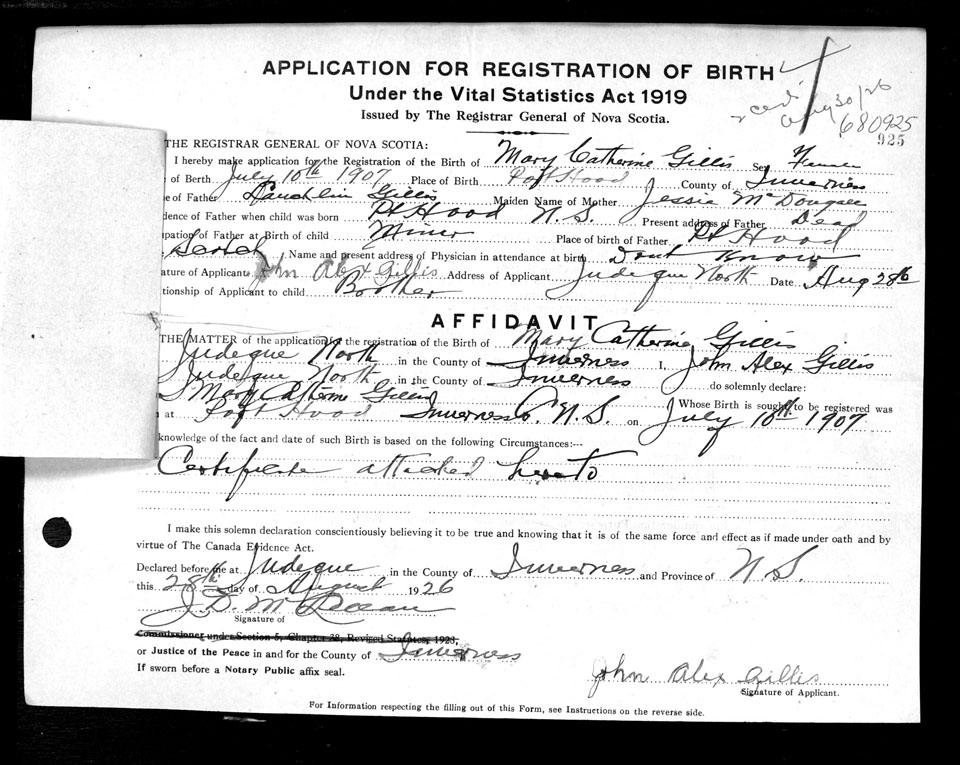 APPLICATION FOR REGISTRATION OF BIRTH
Under the Vital Statistics Act 1919
Issued by The Registrar General of Nova Scotia.
Aug 30/26
680925
925
THE REGISTRAR GENERAL OF NOVA SCOTIA:
I hereby make application for the Registration of the Birth of Mary Catherine Gillis Sex
of Berth July 10th 1907 Place of Birth Port Hood County of Inverness
e of Father Lauchlin Gillis Maiden Name of Mother Jessie McDougall
dence of Father when child was born Pt Hood N.S. Present address of Father Dead
pation of Father at Birth of child Miner Place of birth of Father Pt Hood
Scotch Name and present address of Physician in attendance at birth Dont Know
ature of Applicant John Alex Gillis Address of Applicant Judeque North Date Aug 28th
tionship of Applicant to child Brother
AFFIDAVIT
THE MATTER of the application for the registration of the Birth of Mary Catherine Gillis
Judeque North in the County of Inverness I, John Alex Gillis
Judeque North in the County of Inverness do solemnly declare:
Mary Catherine Gillis Whose Birth is sought to be registered was
at Port Hood Inverness Co. N.S. on July 10th 1907
knowledge of the fact and date of such Birth is based on the following Circumstances:--
Certificate attached hereto
I make this solemn declaration conscientiously believing it to be true and knowing that it is of the same force and effect as if made under oath and by
virtue of The Canada Evidence Act.
Declared before me at Judeque in the County of Inverness and Province of N.S.
this 28th day of August 1926
J. D. McLean
Signature of
Commissioner under Section 5, Chapter 38, Revised Statutes, 1923,
or Justice of the Peace in and for the County of Inverness
If sworn before a Notary Public affix seal.
John Alex Gillis
Signature of Applicant.
For Information respecting the filling out of this Form, see Instructions on the reverse side.